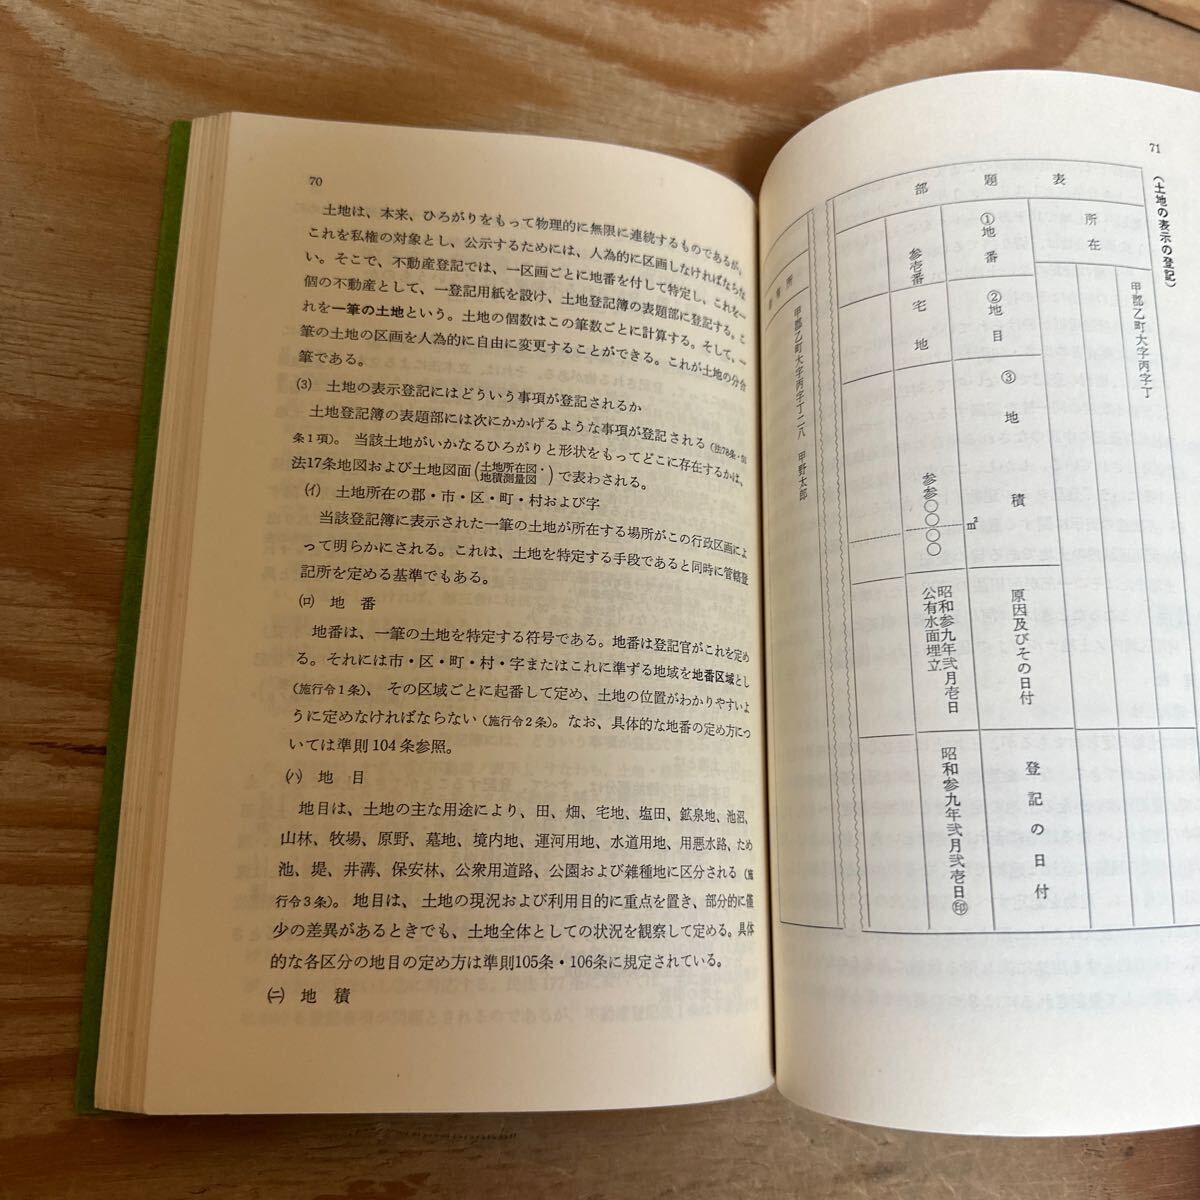 70
土地は、本来、ひろがりをもって物理的に無限に連続するものであるが、
これを私権の対象とし、公示するためには、人為的に区画しなければならな
い。そこで、不動産登記では、一区画ごとに地番を付して特定し、これを一
個の不動産として、一登記用紙を設け、土地登記簿の表題部に登記する。こ
れを一筆の土地という。土地の個数はこの筆数ごとに計算する。そして、一
筆の土地の区画を人為的に自由に変更することができる。これが土地の分合
筆である。
(3) 土地の表示登記にはどういう事項が登記されるか
土地登記簿の表題部には次にかかげるような事項が登記される(法78条・
条1項)。当該土地がいかなるひろがりと形状をもってどこに存在するかは、
法17条地図および土地図面(土地所在図・地積測量図)で表わされる。
(イ) 土地所在の郡・市・区・町・村および字
当該登記簿に表示された一筆の土地が所在する場所がこの行政区画によ
って明らかにされる。これは、土地を特定する手段であると同時に管轄登
記所を定める基準でもある。
(ロ) 地番
地番は、一筆の土地を特定する符号である。地番は登記官がこれを定め
る。それには市・区・町・村・字またはこれに準ずる地域を地番区域とし
(施行令1条)、その区域ごとに起番して定め、土地の位置がわかりやすいよ
うに定めなければならない(施行令2条)。なお、具体的な地番の定め方につ
いては準則104条参照。
(ハ) 地目
地目は、土地の主な用途により、田、畑、宅地、塩田、鉱泉地、池沼、
山林、牧場、原野、墓地、境内地、運河用地、水道用地、用悪水路、ため
池、堤、井溝、保安林、公衆用道路、公園および雑種地に区分される(施
行令3条)。地目は、土地の現況および利用目的に重点を置き、部分的に僅
少の差異があるときでも、土地全体としての状況を観察して定める。具体
的な各区分の地目の定め方は準則105条・106条に規定されている。
(ニ) 地積
71
(土地の表示の登記)
表題部
所在
甲郡乙町大字丙字丁
①地番
②地目
③地積
㎡
原因及びその日付
登記の日付
参壱番
宅地
参参〇〇〇〇
昭和参九年弐月壱日
公有水面埋立
昭和参九年弐月弐壱日㊞
甲郡乙町大字丙字丁二八 甲野太郎